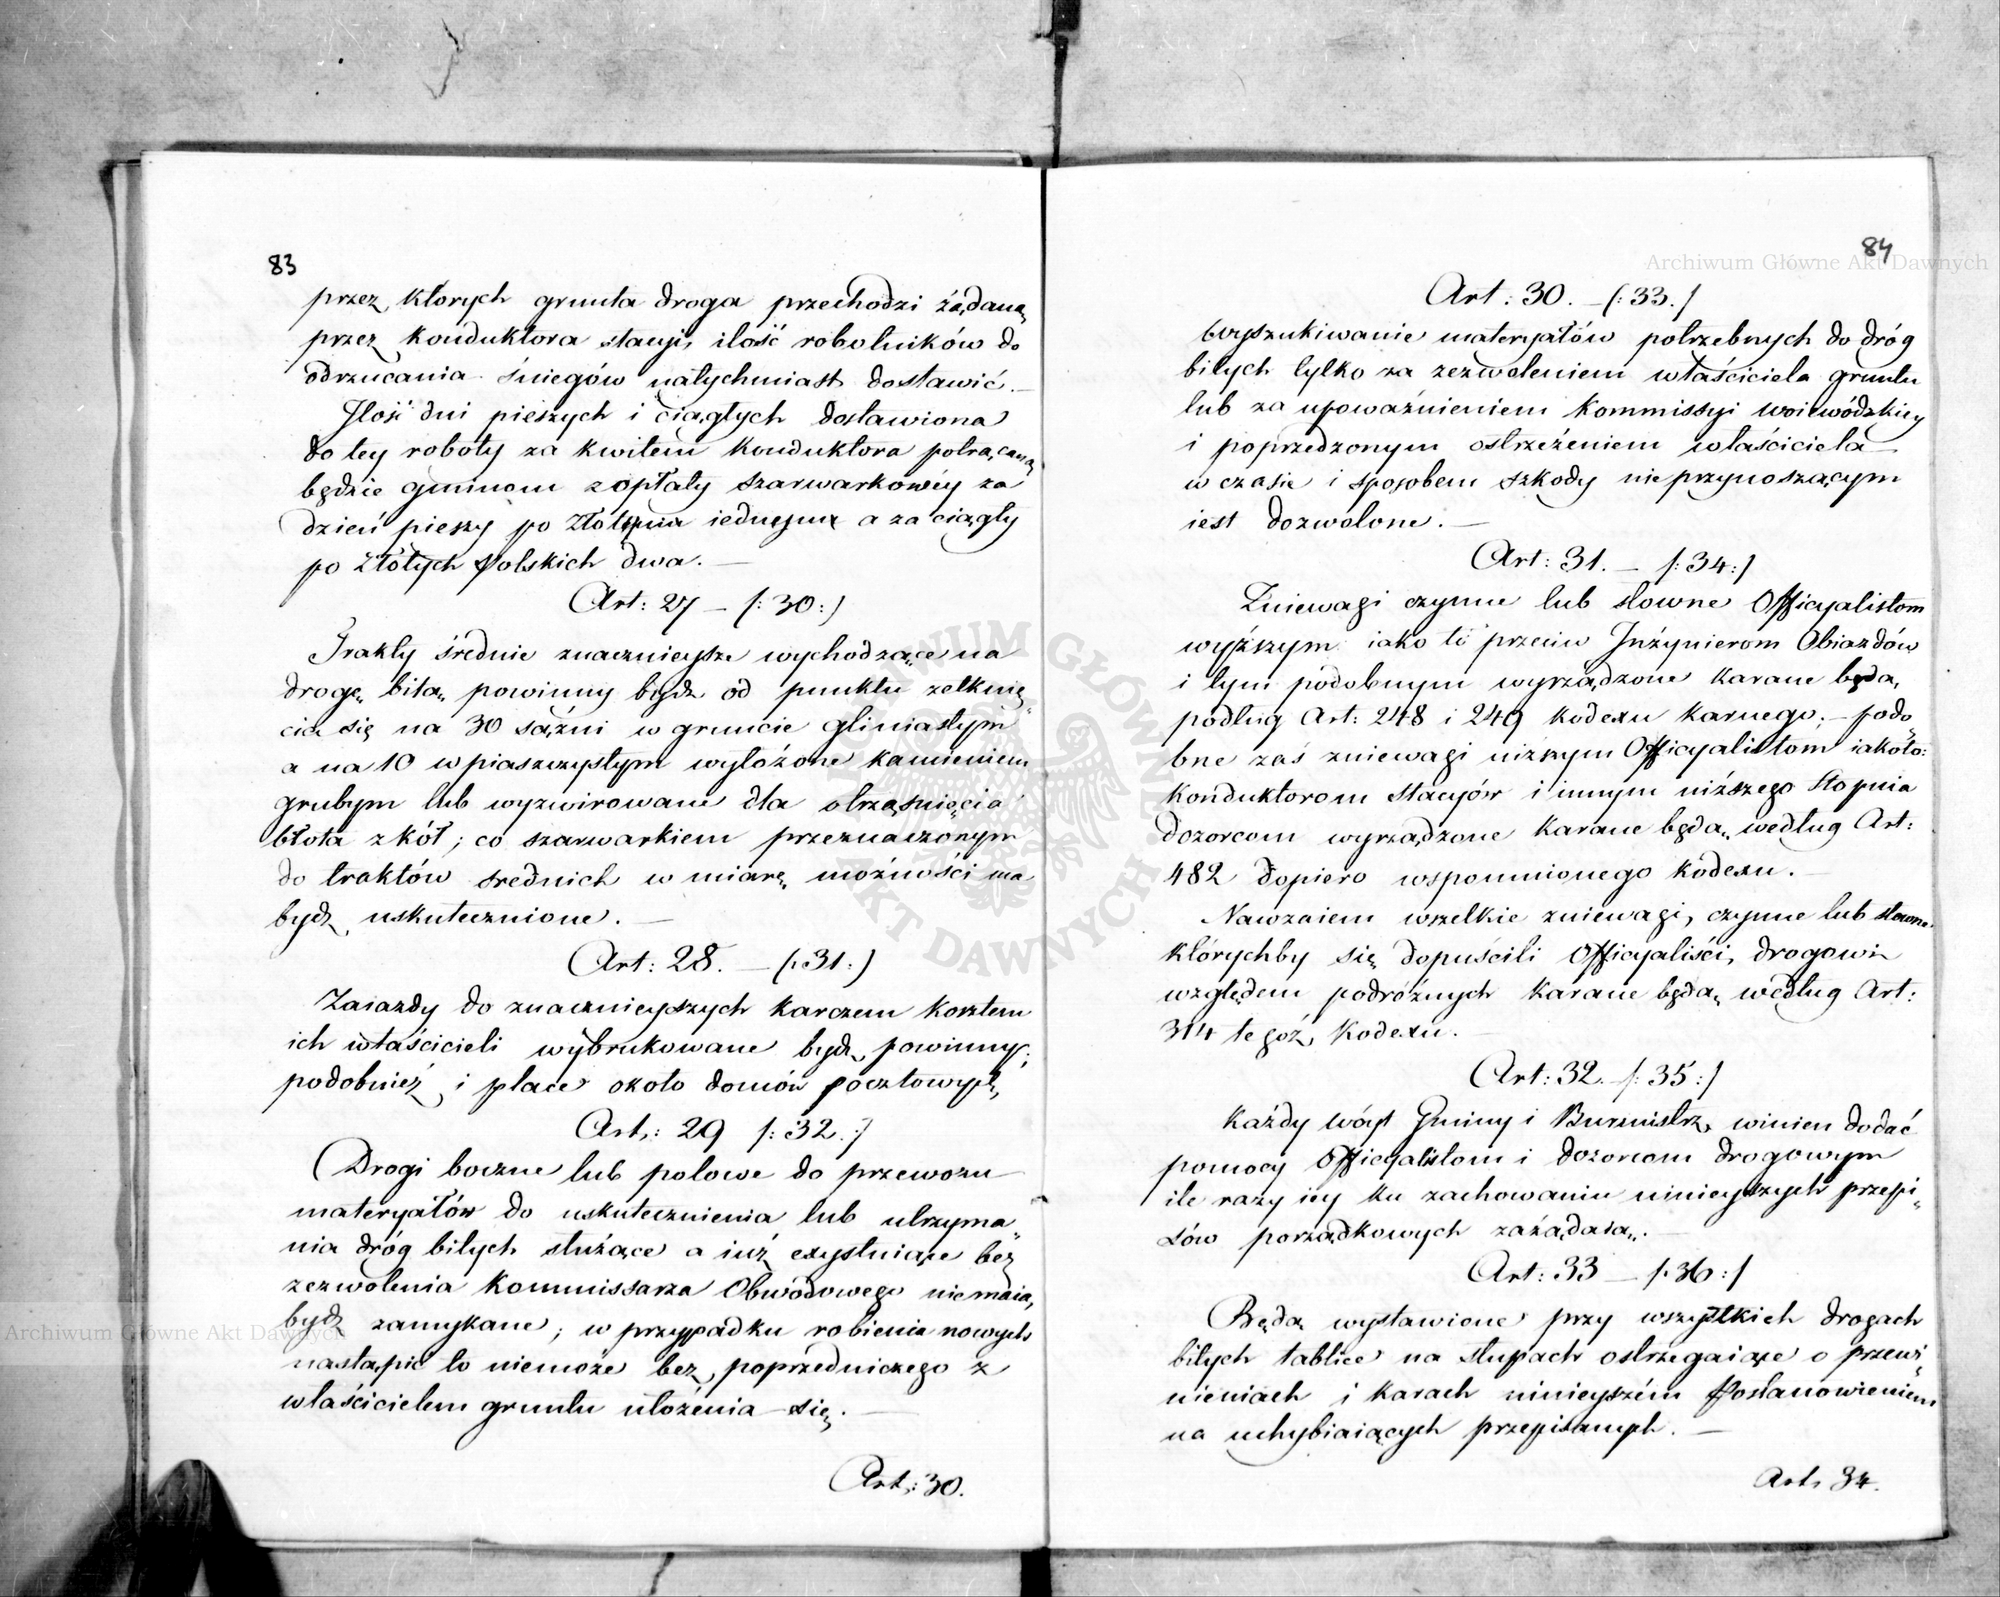 83
przez których grunta droga przechodzi żądaną
przez konduktora stacyi, ilość robotników do
odrzucania śniegów natychmiast dostawić. —
Ilość dni pieszych i ciągłych dostawiona
do tey roboty za kwitem Konduktora potrącaną
będzie gminom z opłaty szarwarkowéy za
dzień pieszy po Złotemu iednemu a za ciągły
po Złotych polskich dwa. —
Art: 27 — /: 30 :/
Trakty średnie znacznieysze wychodzące na
drogę bitą powinny bydz od punktu zetknię„
cia się na 30 sążni w gruncie gliniastym
a na 10 w piaszczystym wyłożone kamieniem
grubym lub wyzwirowane dla otrząśnięcia
błota z kół; co szarwarkiem przeznaczonym
do traktów srednich w miarę możności ma
bydz uskutecznione. —
Art: 28. — (: 31 :)
Zaiazdy do znacznieyszych karczem kosztem
ich właścicieli wybrukowane bydz powinny;
podobnież i place około domów pocztowych,
Art: 29 /: 32. :/
Drogi boczne lub polowe do przewozu
materyałów do uskutecznienia lub utrzyma„
nia dróg bitych służące a iuż exystuiące bez
zezwolenia Kommissarza Obwodowego nie maią
bydz zamykane; w przypadku robienia nowych
nastąpić to niemoże bez poprzedniczego z
właścicielem gruntu ułożenia się. —
Art: 30.
84
Art: 30. — (: 33. /
Wyszukiwanie materyałów potrzebnych do dróg
bitych tylko za zezwoleniem właściciela gruntu
lub za upoważnieniem Kommissyi woiewódzkiey
i poprzedzonym ostrzeżeniem właściciela
w czasie i sposobem szkody nie przynoszącym
iest dozwolone. —
Art: 31. — /: 34 :/
Zniewagi czynne lub słowne Officyalistom
wyższym iako to przeciw Inżynierom Obiazdów
i tym podobnym wyrządzone karane będą,
podług Art: 248 i 249 kodexu karnego. — podo„
bne zaś zniewagi nizszym Officyalistom iako to:
Konduktorom Stacyów i innym niższego Stopnia
dozorcom wyrządzone karane będą według Art:
482 dopiero wspomnionego kodexu. —
Nawzaiem wszelkie zniewagi, czynne lub słowne
którychby się dopuścili Officyaliści, drogowi
względem podróżnych karane będą według Art:
314 tegoż Kodexu. —
Art: 32. /: 35 :/
Każdy wóyt Gminy i Burmistrz winien dodać
pomocy Officyalistom i dozorcom drogowym
ile razy iey ku zachowaniu ninieyszych przepi„
sów porządkowych zażądaią. —
Art: 33 — /: 36 : /
Będą wystawione przy wszystkich drogach
bitych tablice na słupach ostrzegaiące o przewi„
nieniach i karach ninieyszém Postanowieniem
na uchybiaiących przepisanych. —
Art. 34.
Archiwum Główne Akt Dawnych
Archiwum Główne Akt Dawnych
ARCHIWUM GŁÓWNE AKT DAWNYCH